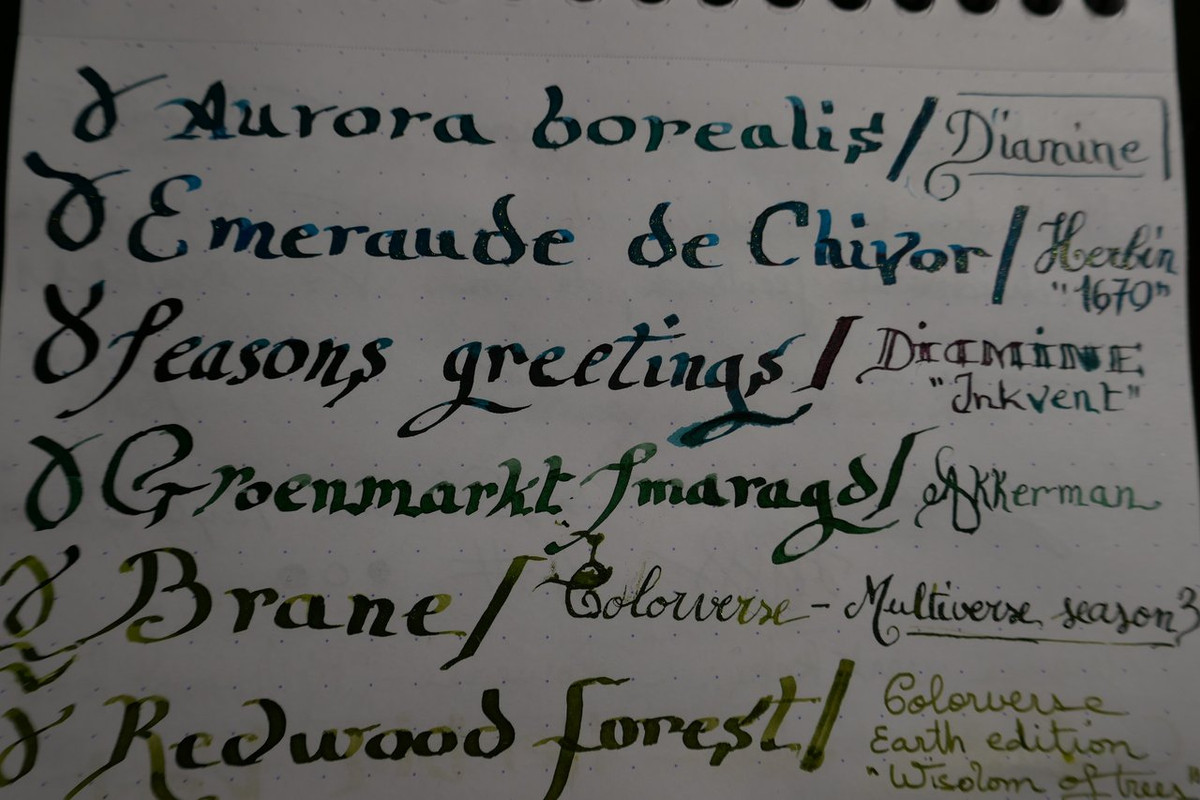 Aurora borealis / Diamine
Emeraude de Chivor / Herbin
"1670"
Seasons greetings / DIAMINE
"Inkvent"
Groenmarkt Smaragd / Akkerman
Brane / Colorverse - Multiverse season 3
Redwood forest / Colorverse
Earth edition
"Wisdom of trees"